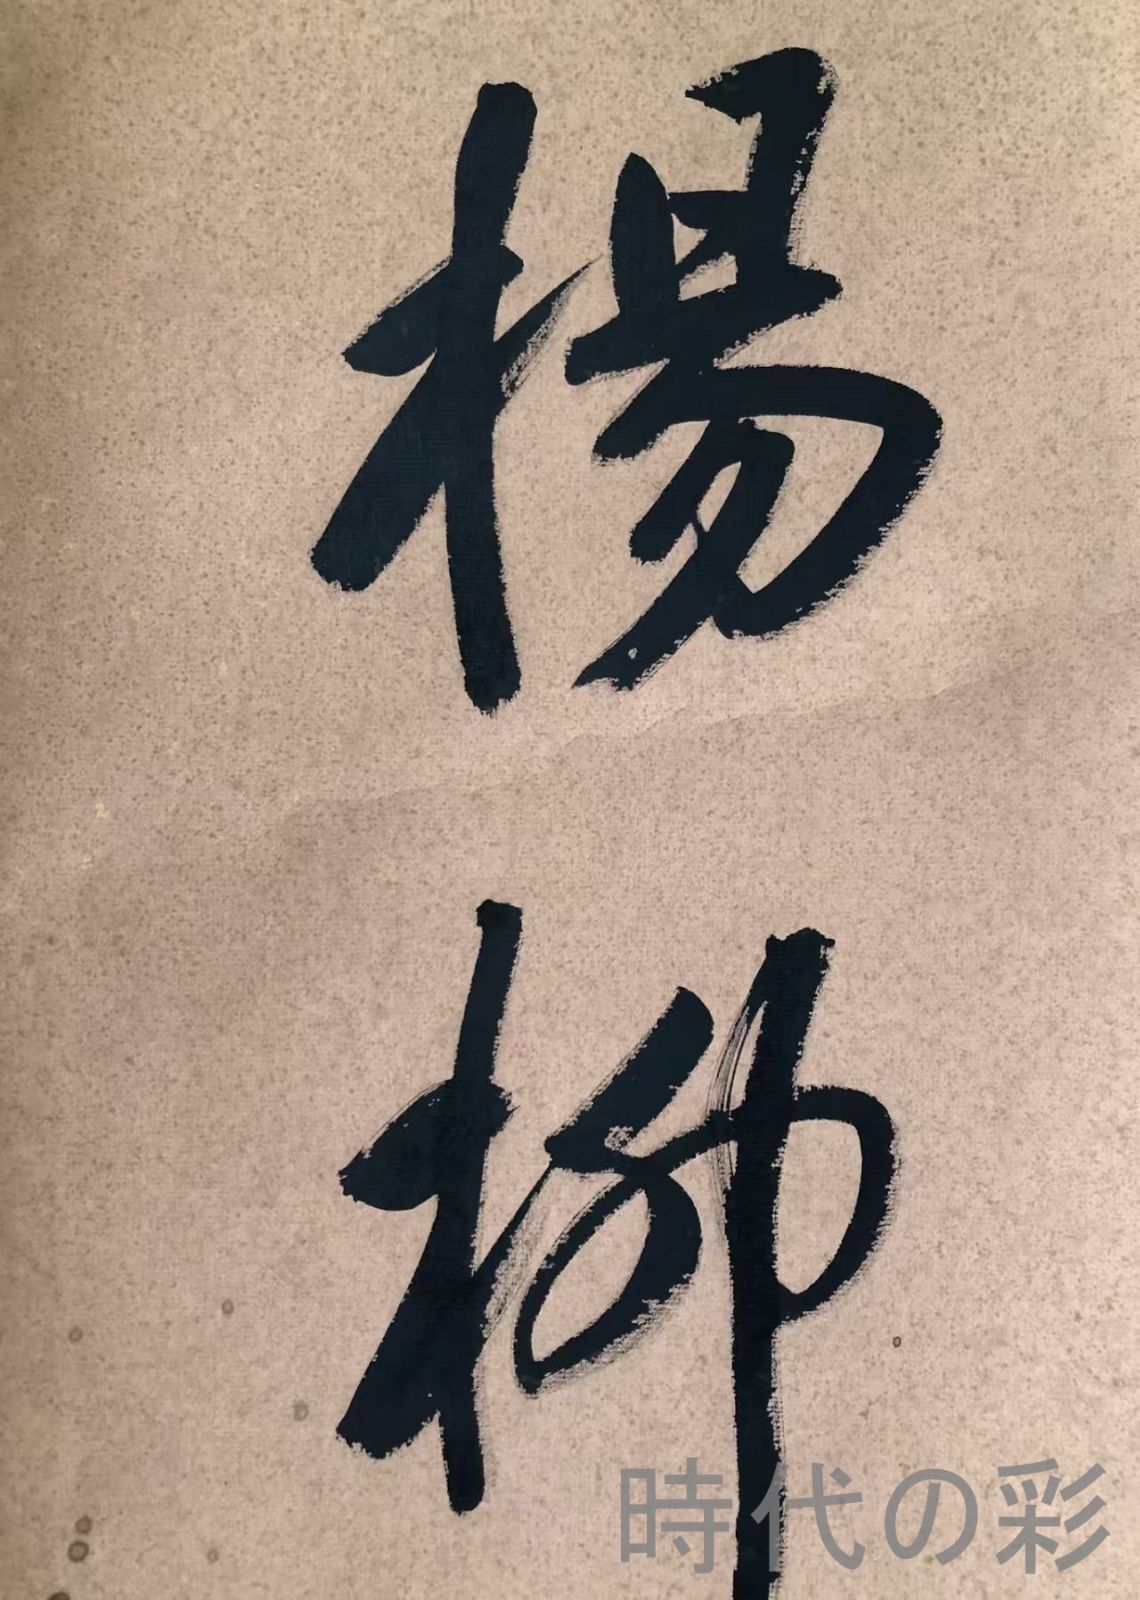 楊柳
時代の彩